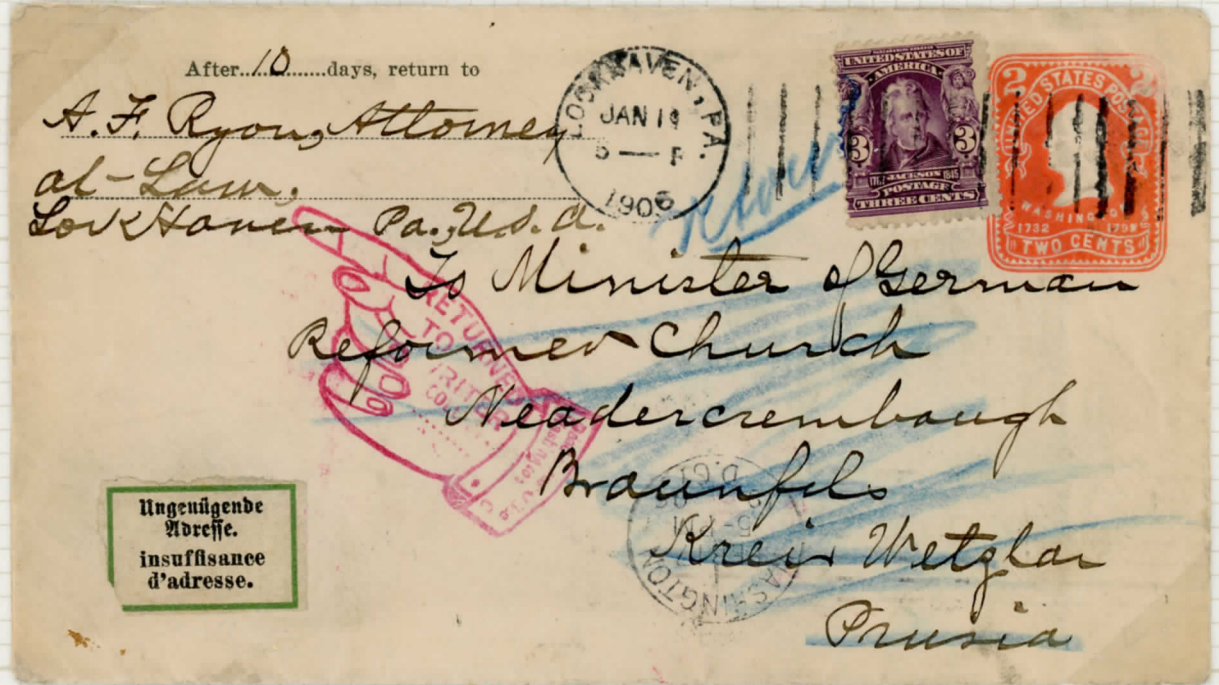 After 10 days, return to
A. F. Ryon, Attorney
at-Law.
Lock Haven Pa., U.S.A.
LOCK HAVEN, PA.
JAN 19
5 — P
1906
UNITED STATES OF
AMERICA
3 3
1767 JACKSON 1845
POSTAGE
THREE CENTS
2 2
UNITED STATES POSTAGE
WASHINGTON
1732 1799
TWO CENTS
To Minister of German
Reformed Church
Neadercrembaugh
Braunfels
Kreis Wetzlar
Prusia
RETURNED
TO
WRITER
Ungenügende
Adresse.
insuffisance
d'adresse.
WASHINGTON
D.C.